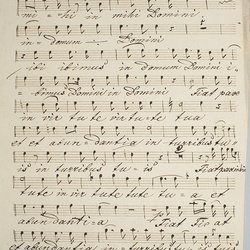 mi - hi in mihi Domini
in - domum Domini
ibimus in domum Domini i -
bimus Domini in Domini Fiat pax
in vir tu te in vir - tute tua
et et abun - dantia in turribus tu -
is in turribus tu - is Fiat pax in vir
tute in vir tute tute tu - a et
abun danti - a Fiat Fiat
et abundantia in turribus